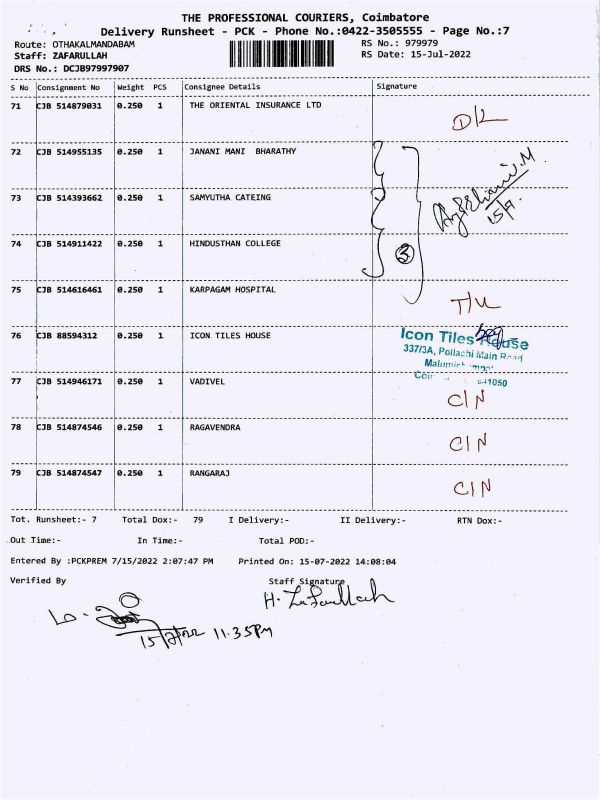 THE PROFESSIONAL COURIERS, Coimbatore
Delivery Runsheet - PCK - Phone No.:0422-3505555 - Page No.:7
Route: OTHAKALMANDABAM RS No.: 979979
Staff: ZAFARULLAH RS Date: 15-Jul-2022
DRS No.: DCJB97997907
S No Consignment No Weight PCS Consignee Details Signature
71 CJB 514879031 0.250 1 THE ORIENTAL INSURANCE LTD
D/L
72 CJB 514955135 0.250 1 JANANI MANI BHARATHY
73 CJB 514393662 0.250 1 SAMYUTHA CATEING
15/7
74 CJB 514911422 0.250 1 HINDUSTHAN COLLEGE
3
75 CJB 514616461 0.250 1 KARPAGAM HOSPITAL
T/U
76 CJB 88594312 0.250 1 ICON TILES HOUSE
Icon Tiles House
337/3A, Pollachi Main Road
641050
77 CJB 514946171 0.250 1 VADIVEL
C/N
78 CJB 514874546 0.250 1 RAGAVENDRA
C/N
79 CJB 514874547 0.250 1 RANGARAJ
C/N
Tot. Runsheet:- 7 Total Dox:- 79 I Delivery:- II Delivery:- RTN Dox:-
Out Time:- In Time:- Total POD:-
Entered By :PCKPREM 7/15/2022 2:07:47 PM Printed On: 15-07-2022 14:08:04
Verified By Staff Signature
H. Zafarullah
11.35PM